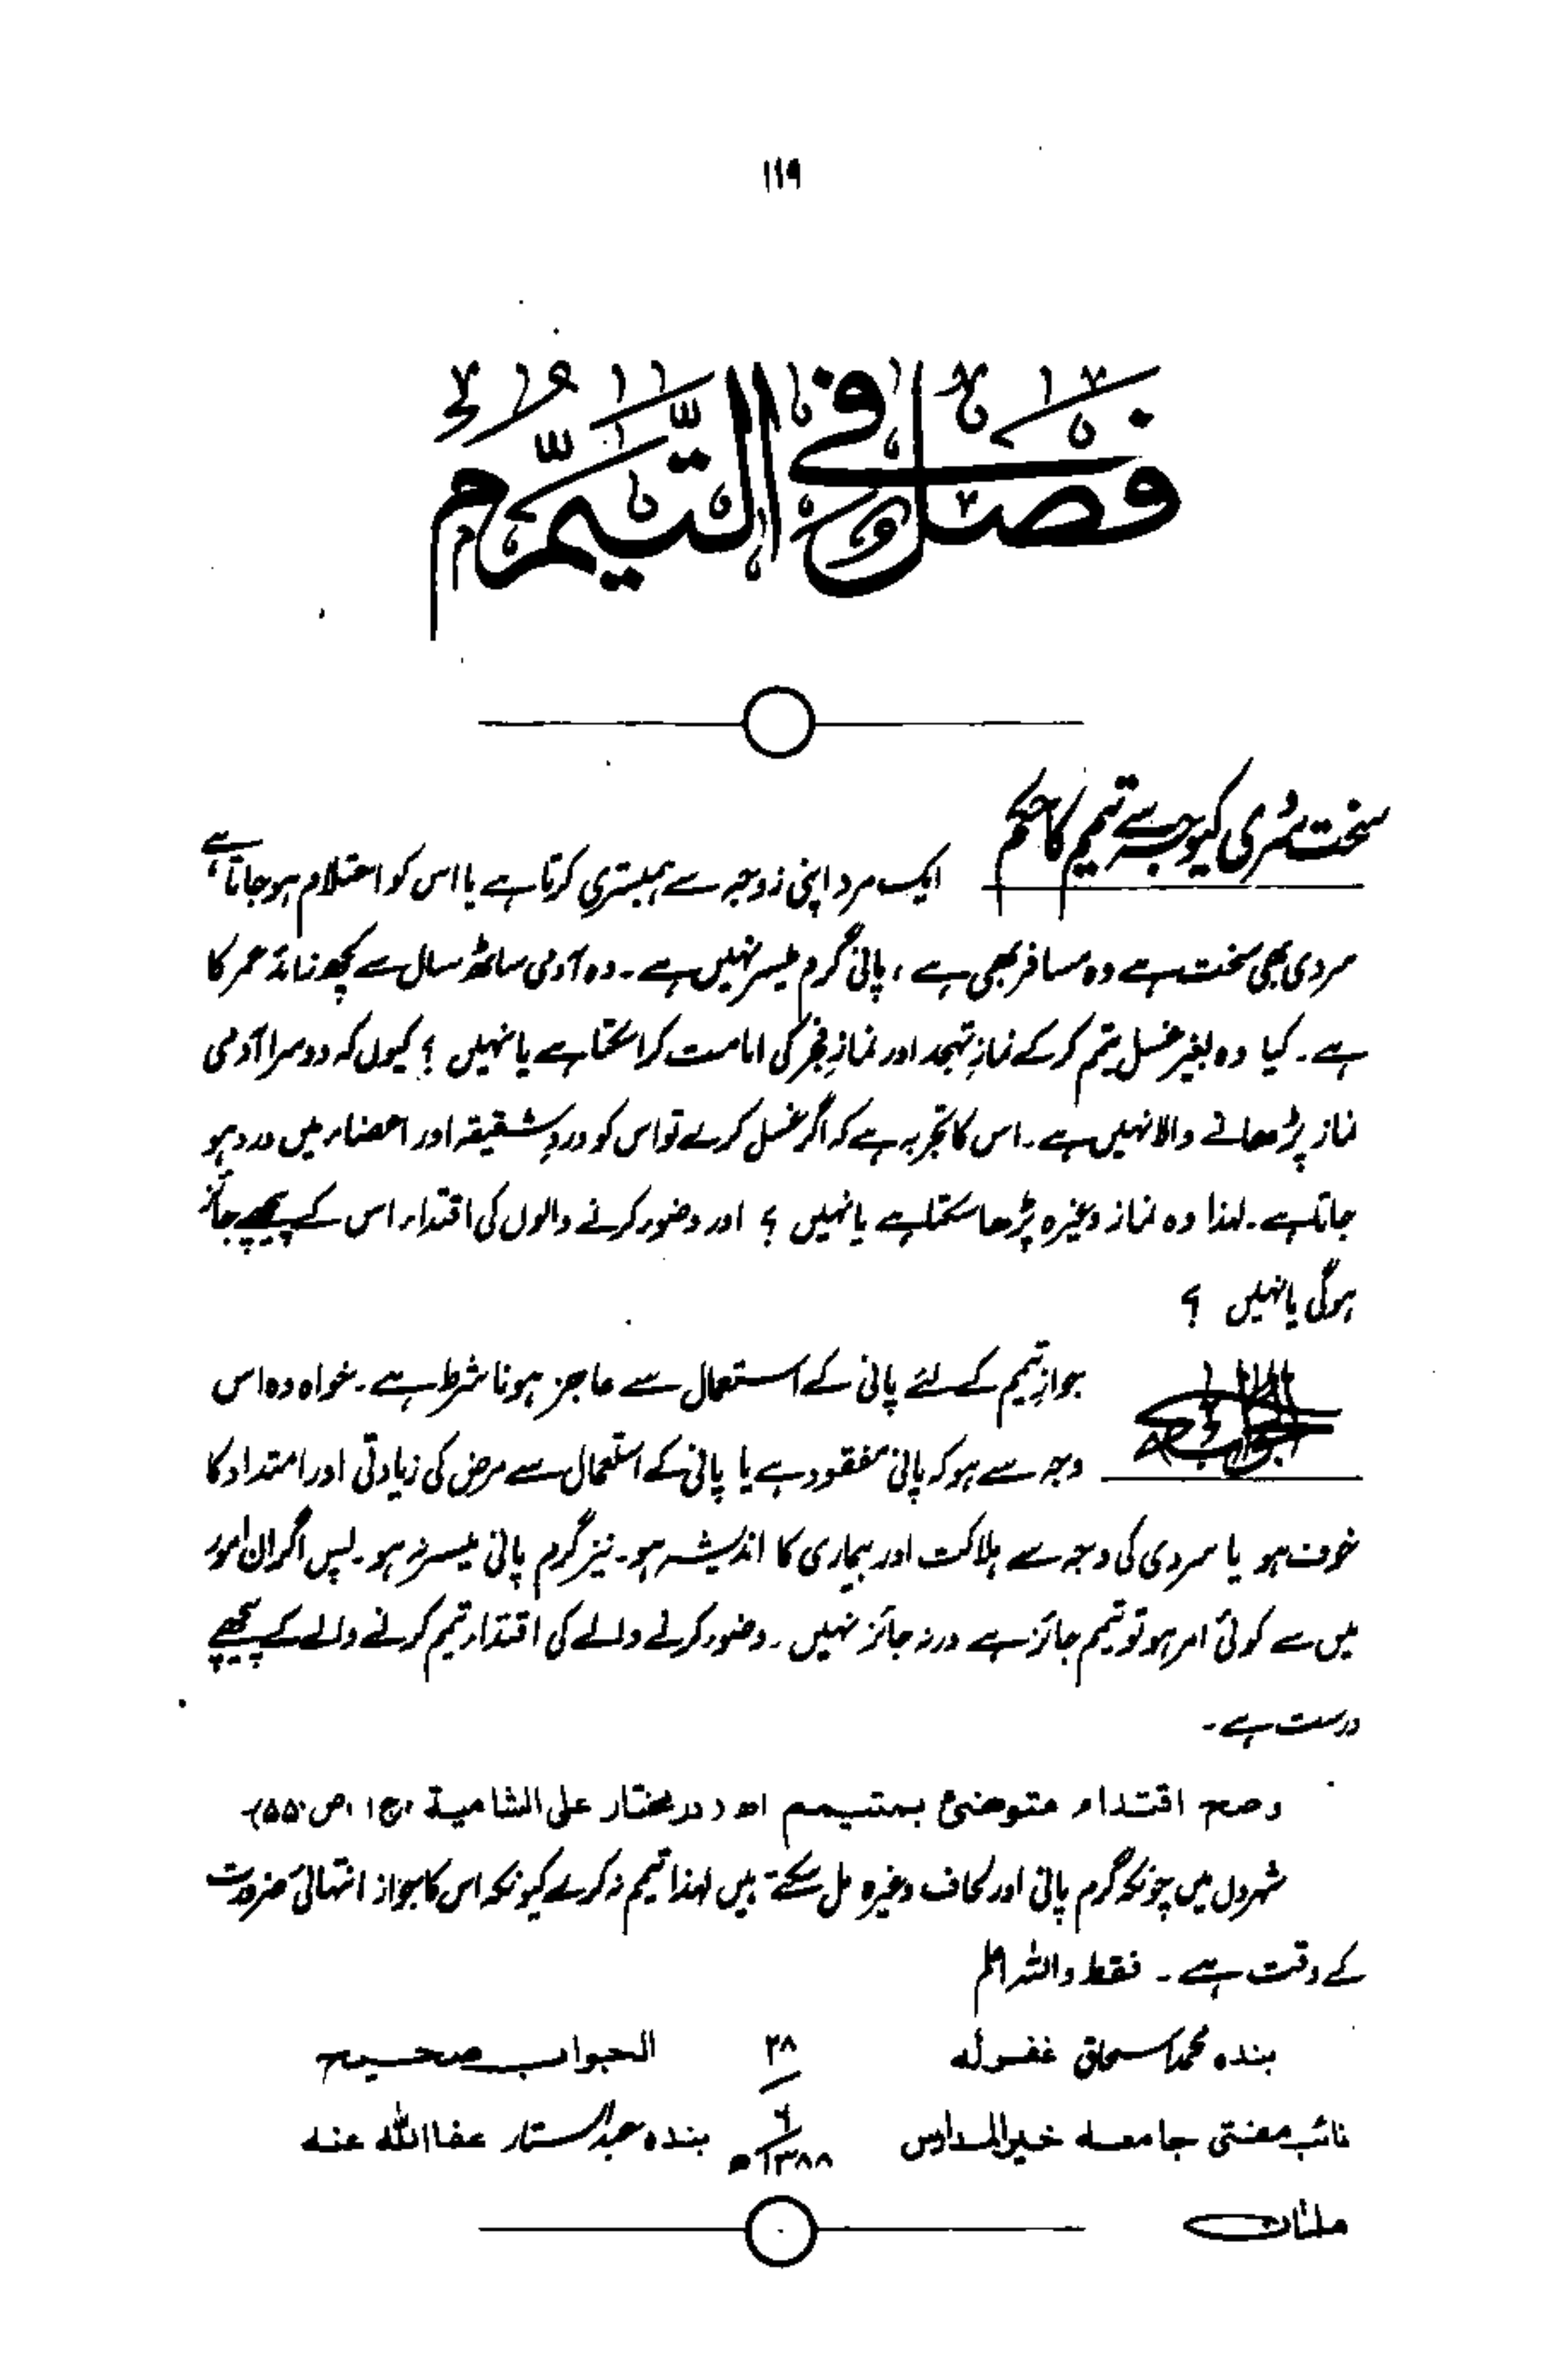 ۱۱۹
فصل في التيمم
سخت سردی کیوجہ سے تیمم کا حکم
ایک مرد اپنی زوجہ سے ہمبستری کرتا ہے یا اس کو احتلام ہو جاتا ہے،
سردی بھی سخت ہے وہ مسافر بھی ہے، پانی گرم میسر نہیں ہے۔ وہ آدمی ساٹھ سال سے کچھ زائد عمر کا
ہے۔ کیا وہ بغیر غسل تیمم کر کے نمازِ تہجد اور نمازِ فجر کی امامت کرا سکتا ہے یا نہیں ؟ کیوں کہ دوسرا آدمی
نماز پڑھانے والا نہیں ہے۔ اس کا تجربہ ہے کہ اگر غسل کرے تو اس کو دردِ شقیقہ اور اعضاء میں درد ہو
جاتا ہے۔ لہذا وہ نماز وغیرہ پڑھا سکتا ہے یا نہیں ؟ اور وضوء کرنے والوں کی اقتداء اس کے پیچھے جائز
ہوگی یا نہیں ؟
الجواب
جوازِ تیمم کے لئے پانی کے استعمال سے عاجز ہونا شرط ہے۔ خواہ وہ اس
وجہ سے ہو کہ پانی مفقود ہے یا پانی کے استعمال سے مرض کی زیادتی اور امتداد کا
خوف ہو یا سردی کی وجہ سے ہلاکت اور بیماری کا اندیشہ ہو۔ نیز گرم پانی میسر نہ ہو۔ پس اگر ان امور
میں سے کوئی امر ہو تو تیمم جائز ہے ورنہ جائز نہیں۔ وضوء کرنے والے کی اقتداء تیمم کرنے والے کے پیچھے
درست ہے۔
وصح اقتداء متوضئ بمتيمم اھ (در مختار على الشامية، ج۱، ص۵۵۰)
شہروں میں چونکہ گرم پانی اور لحاف وغیرہ مل سکتے ہیں لہذا تیمم نہ کرے کیونکہ اس کا جواز انتہائی ضرورت
کے وقت ہے۔ فقط واللہ اعلم
بندہ محمد اسحاق غفرلہ ۲۸ الجواب صحیح
نائب مفتی جامعہ خیر المدارس ۶ / ۱۳۸۸ھ بندہ عبدالستار عفا اللہ عنہ
ملتان